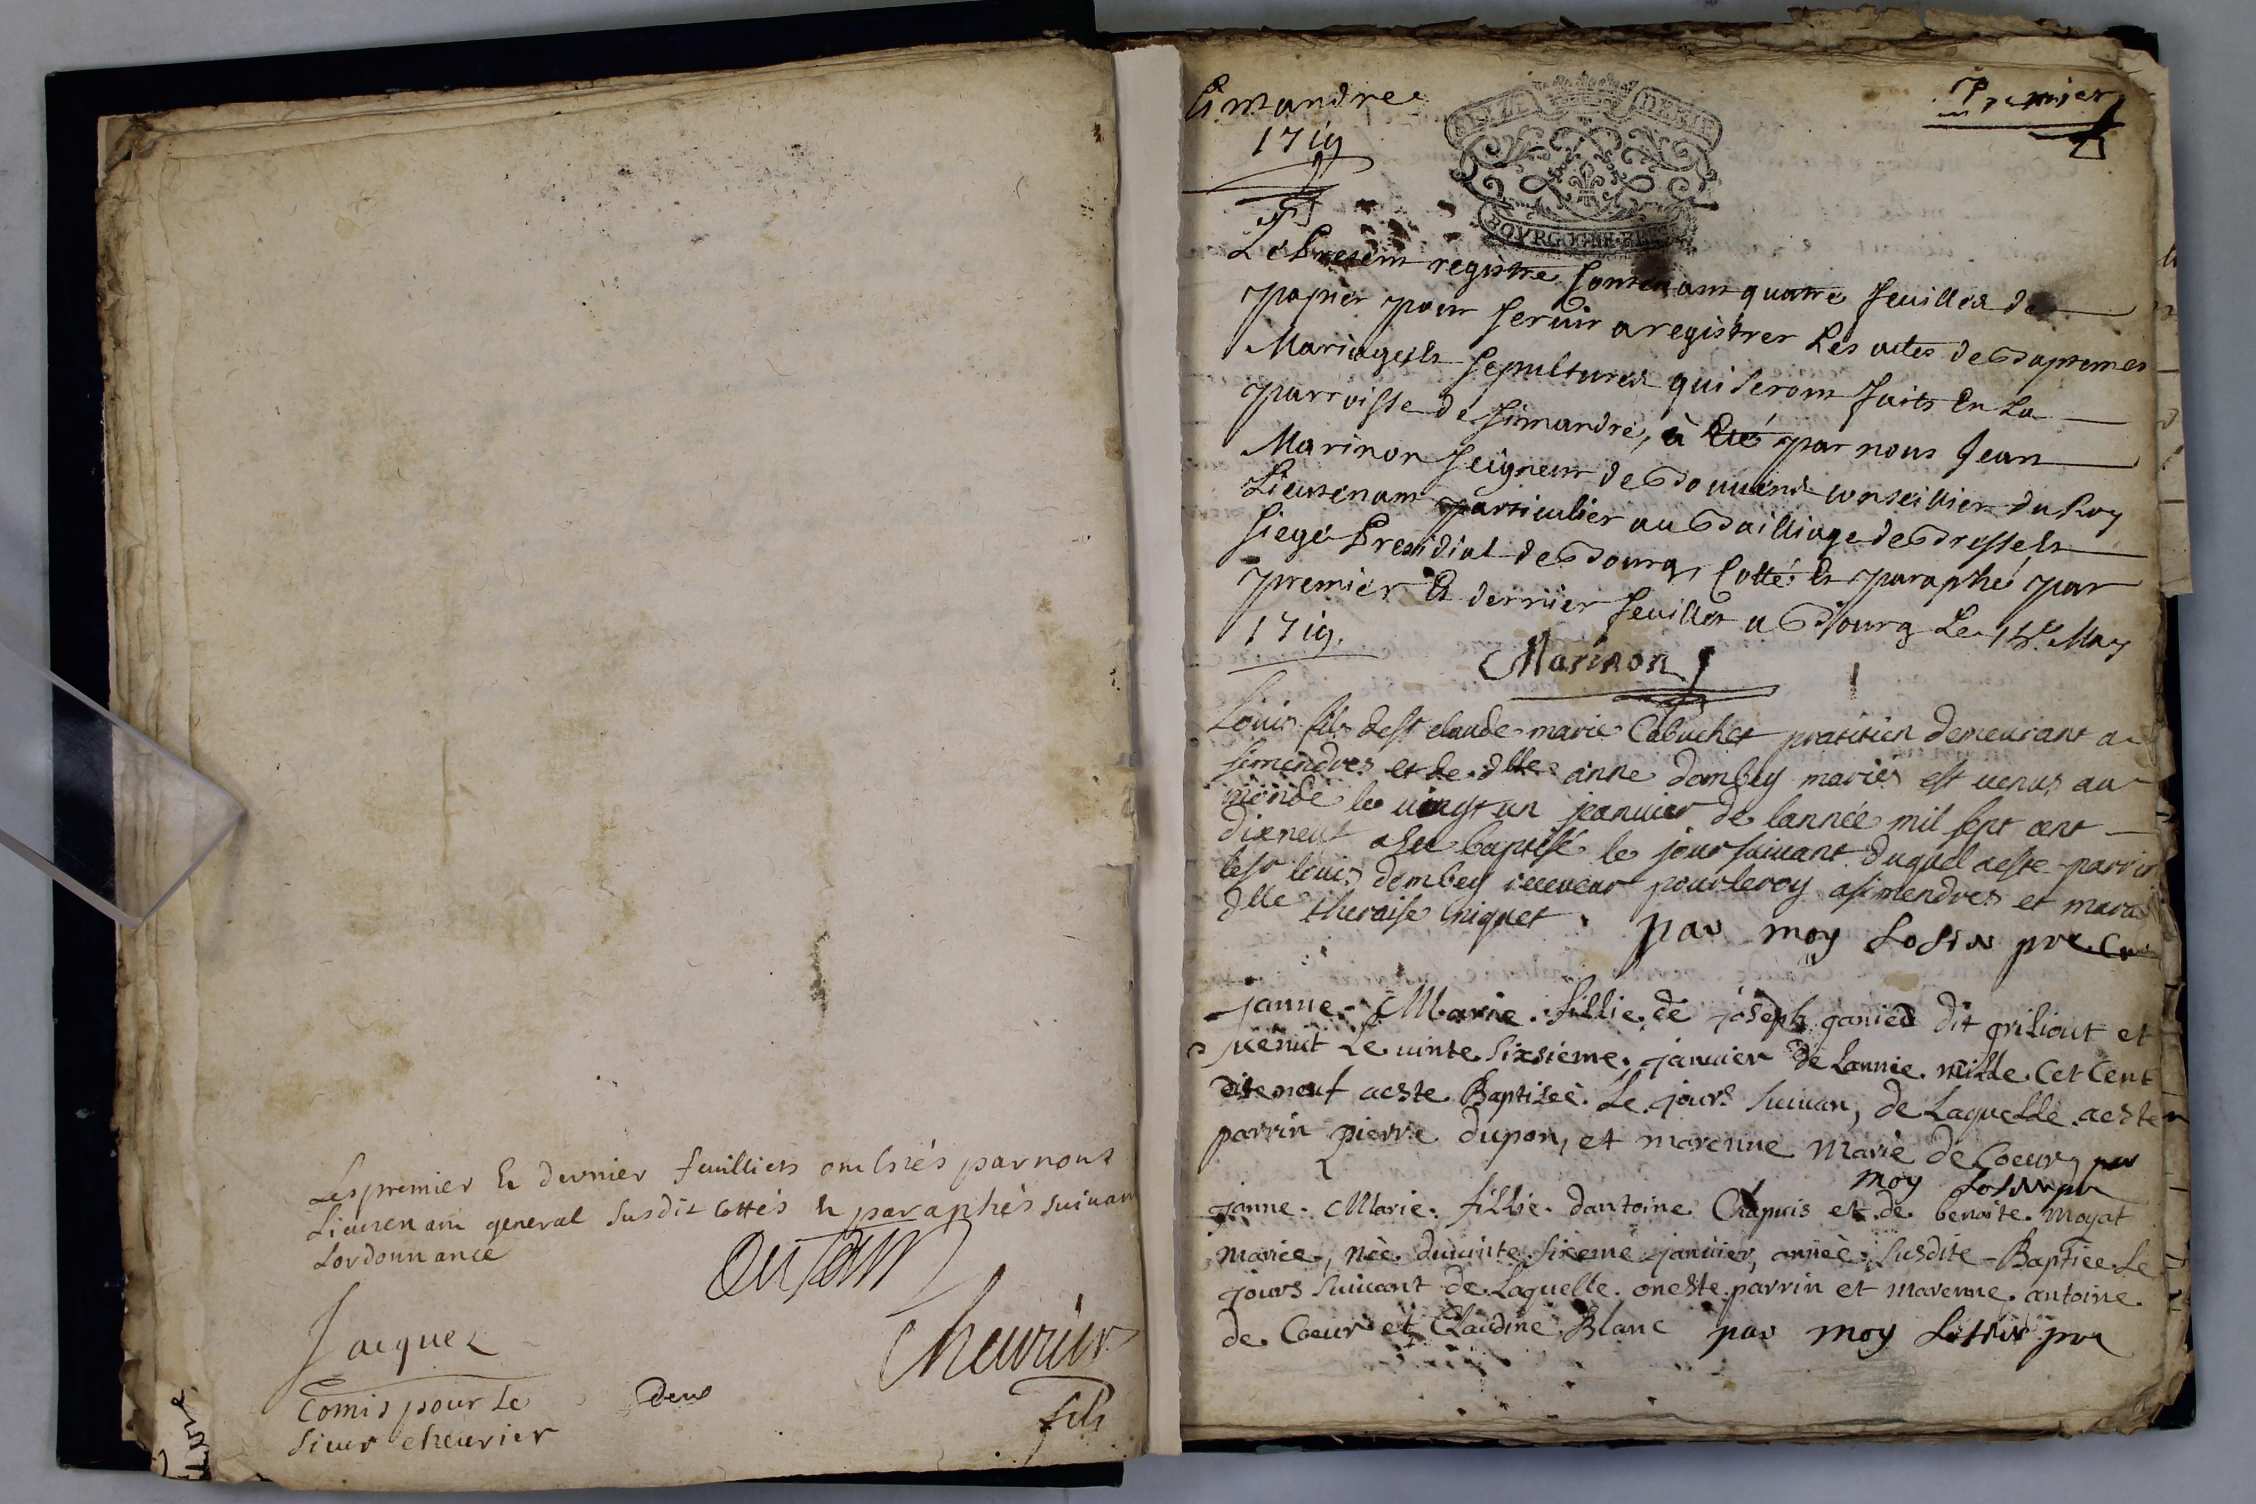 Les premier Et dernier feuilliets ont Etés par nous
Lieutenant general susdit cottés Et paraphés suivant
Lordonnance
Jacquet
Comis pour Le
sieur cheurier
deux
Cheurier
fils
Simandre
1719
Premier
BOVRGOGNE
Le Present registre Contenant quatre feuilles de
papier pour servir a registrer Les actes de Baptemes
Mariages Et sepultures qui seront faits En La
parroisse de simandre, à Eté par nous Jean
Marinon seigneur de conseillier du Roy
Lieutenant particulier au Bailliage de Bresse Et
siege Presidial de Bourg, Cotté Et paraphé par
premier Et dernier feuillet a Bourg Le May
1719.
Marinon
Louis fils de sr claude marie Cabuchet pratitien demeurant a
simendres et de dlle anne dombey mariés est venus au
monde le uingt un januier de lannée mil sept cent
dixneuf a esté baptisé le jour suiuant duquel a este parrin
le sr louis dombey receueur pour le roy a simendres et mara
dlle theraise niquet par moy pre Cu
janne Marie fillie de joseph ganied dit griliout et
uenut Le uinte sixsieme januier de Lannie mille Cet Cent
dite neuf aeste Baptiseè Le jours suiuan, de Laquelle aeste
parrin pierre dupon, et marenne Marie de Coeur par
moy
janne Marie fillie dantoine Chapuis et de benoite Moyat
mariee, neè du uinte sixeme januier, anneè susdite Baptiee Le
jours suiuant de Laquelle oneste parrin et marenne antoine
de Coeur et Claudine Blanc par moy pre